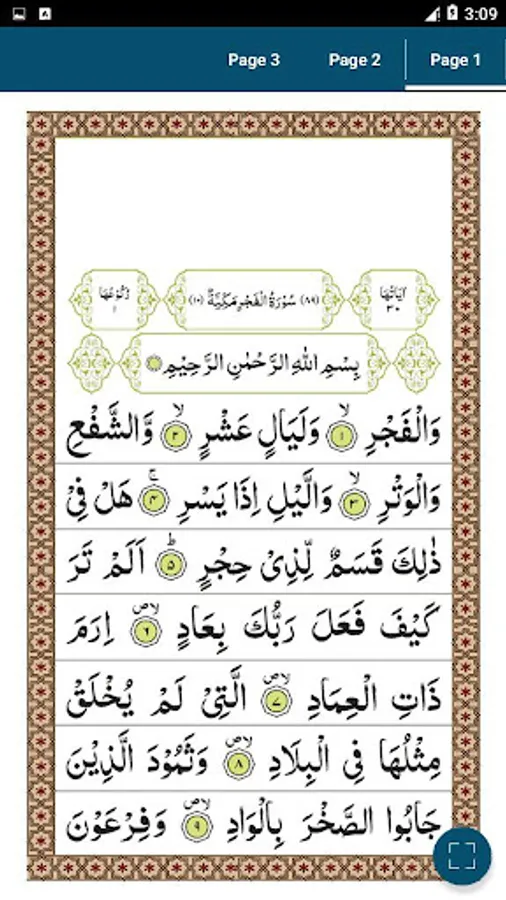 3:09
Page 3 Page 2 Page 1
اٰيَاتُهَا ٣٠ (٨٩) سُوْرَةُ الْفَجْرِ مَكِّيَّةٌ (١٠) رُكُوْعُهَا ١
بِسْمِ اللّٰهِ الرَّحْمٰنِ الرَّحِيْمِ
وَالْفَجْرِ ۙ﴿١﴾ وَلَيَالٍ عَشْرٍ ۙ﴿٢﴾ وَّالشَّفْعِ
وَالْوَتْرِ ۙ﴿٣﴾ وَالَّيْلِ اِذَا يَسْرِ ۚ﴿٤﴾ هَلْ فِيْ
ذٰلِكَ قَسَمٌ لِّذِيْ حِجْرٍ ؕ﴿٥﴾ اَلَمْ تَرَ
كَيْفَ فَعَلَ رَبُّكَ بِعَادٍ ۪ۙ﴿٦﴾ اِرَمَ
ذَاتِ الْعِمَادِ ۪ۙ﴿٧﴾ الَّتِيْ لَمْ يُخْلَقْ
مِثْلُهَا فِي الْبِلَادِ ۪ۙ﴿٨﴾ وَثَمُوْدَ الَّذِيْنَ
جَابُوا الصَّخْرَ بِالْوَادِ ۪ۙ﴿٩﴾ وَفِرْعَوْنَ